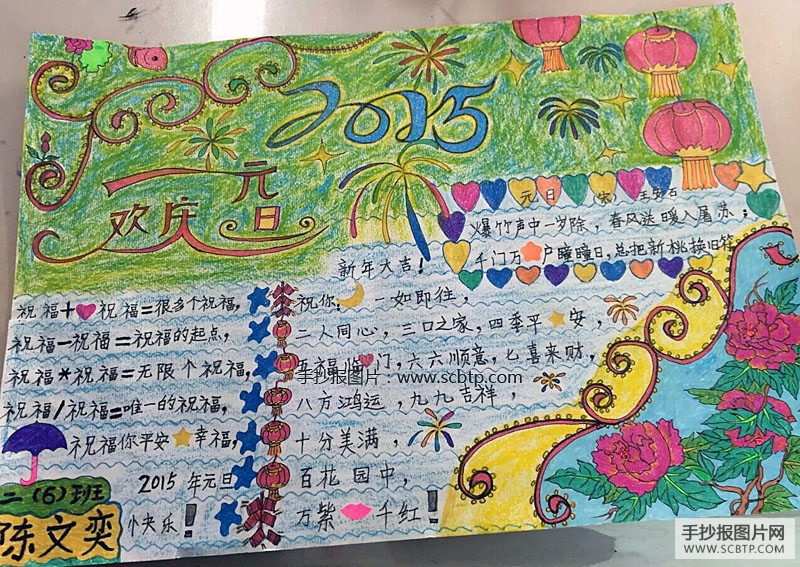 2015
欢庆元旦
元日 宋 王安石
爆竹声中一岁除，春风送暖入屠苏；
千门万户瞳瞳日，总把新桃换旧符
新年大吉！
祝福+祝福=很多个祝福，
祝福-祝福=祝福的起点，
祝福*祝福=无限个祝福，
祝福/祝福=唯一的祝福，
祝福你平安幸福，
2015年元旦
快乐！
祝你：一如即往，
二人同心，三口之家，四季平安，
五福临门，六六顺意，七喜来财，
八方鸿运，九九吉祥，
十分美满，
百花园中，
万紫千红！
二(6)班
陈文奕
手抄报图片：www.scbtp.com
手抄报图片网
WWW.SCBTP.COM